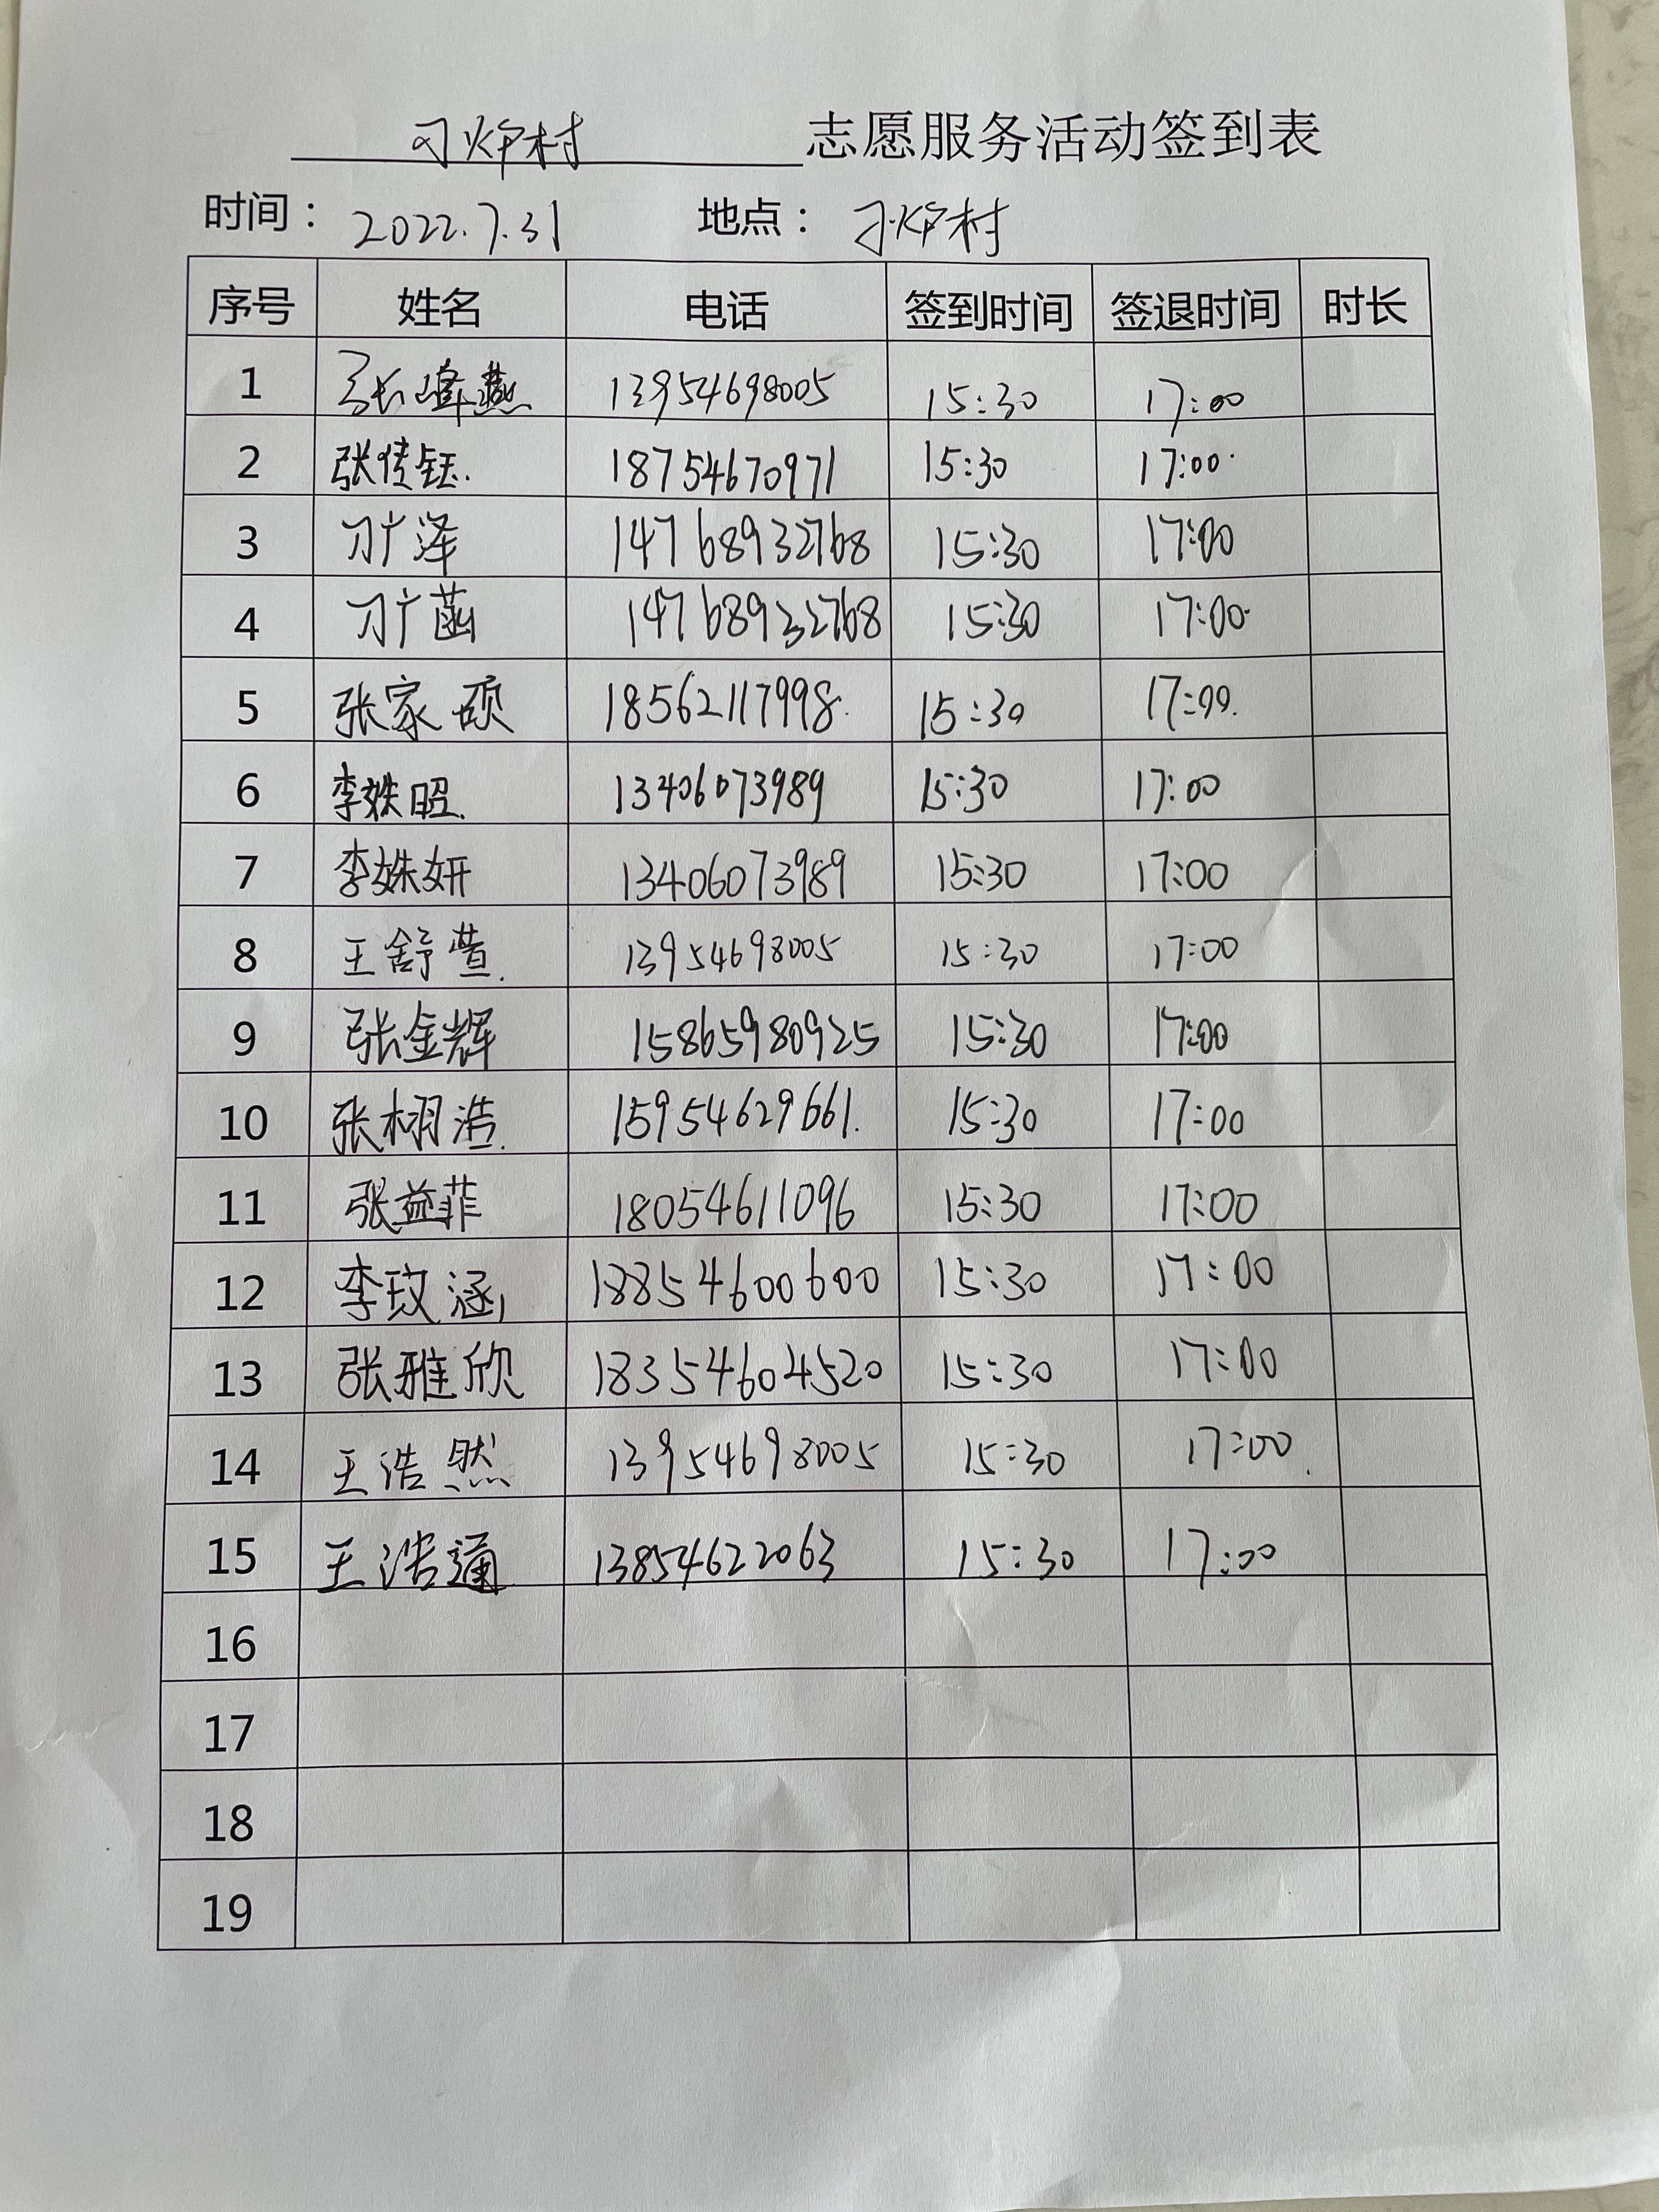 刁炉村 志愿服务活动签到表
时间： 2022.7.31 地点： 刁炉村
序号 姓名 电话 签到时间 签退时间 时长
1 张峰燕 13954698005 15:30 17:00
2 张佳钰 18754670971 15:30 17:00
3 刁广泽 14768932768 15:30 17:00
4 刁广菡 14768932768 15:30 17:00
5 张家硕 18562117998 15:30 17:00
6 李姝昭 13406073989 15:30 17:00
7 李姝妍 13406073989 15:30 17:00
8 王舒萱 13954698005 15:30 17:00
9 张金辉 15865980925 15:30 17:00
10 张栩浩 15954629661 15:30 17:00
11 张益菲 18054611096 15:30 17:00
12 李玟涵 18854600600 15:30 17:00
13 张雅欣 18354604520 15:30 17:00
14 王浩然 13954698005 15:30 17:00
15 王浩通 13854622063 15:30 17:00
16
17
18
19